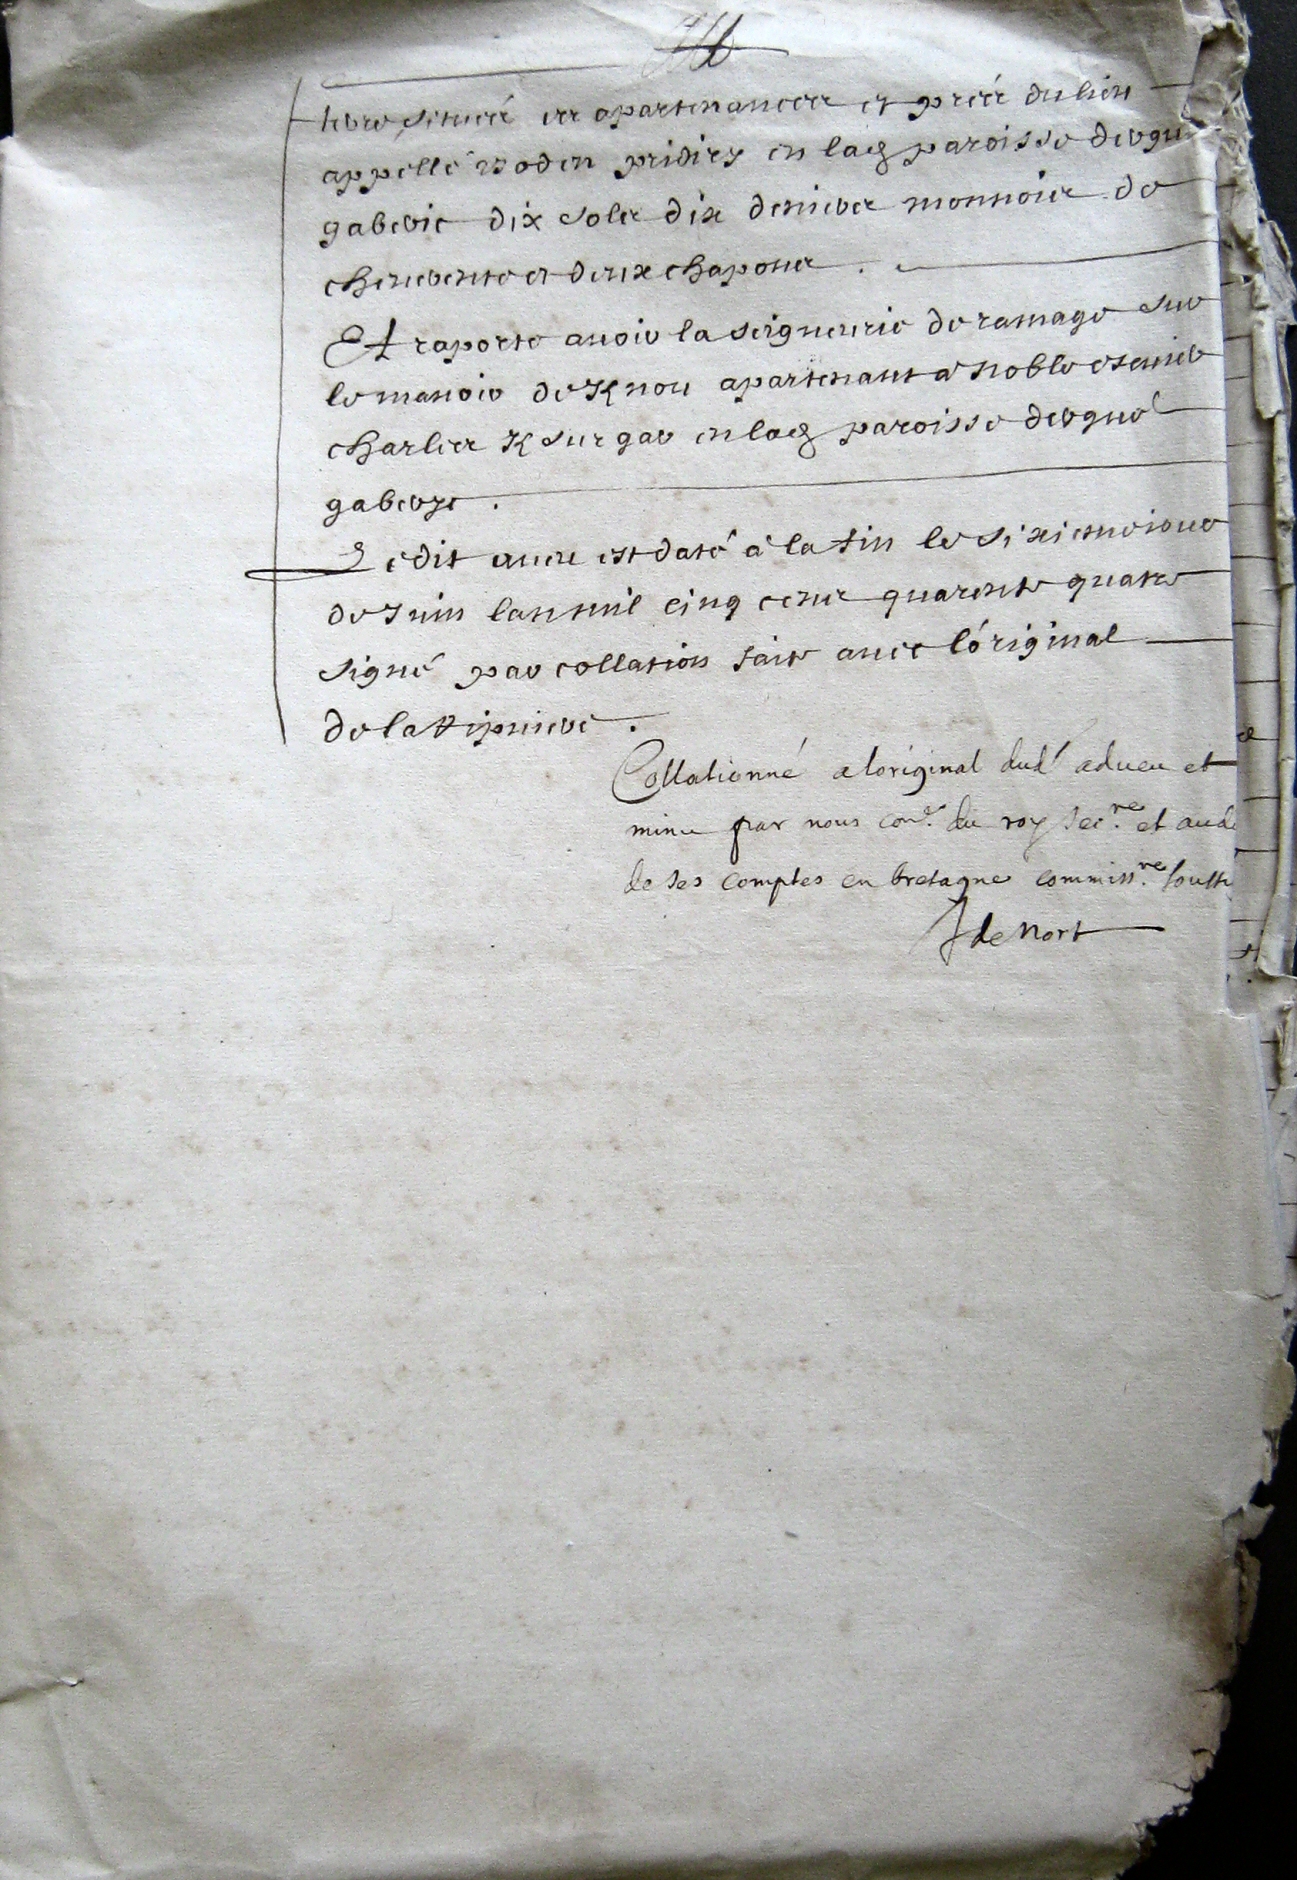 terre situeé es apartenances et preés du lieu
appellé Boden pridiry en lad paroisse dergu
gaberic dix sols dix deniers monnoie de
cheuerente et deux chapons .
Et raporte auoir la seigneurie de ramage sur
le manoir de Knou apartenant a noble escuier
charles K surgar en lad paroisse dergue
gaberyc .
Ledit aueu est daté à la fin le sixiesme iour
de Juin lan mil cinq cens quarente quatre
signé par collation faite auec lóriginal
de la
Collationné a loriginal dud adueu et
minu par nous conr. du roy secre. et aud
de ses comptes en bretagne commissre. soub
J de Nort